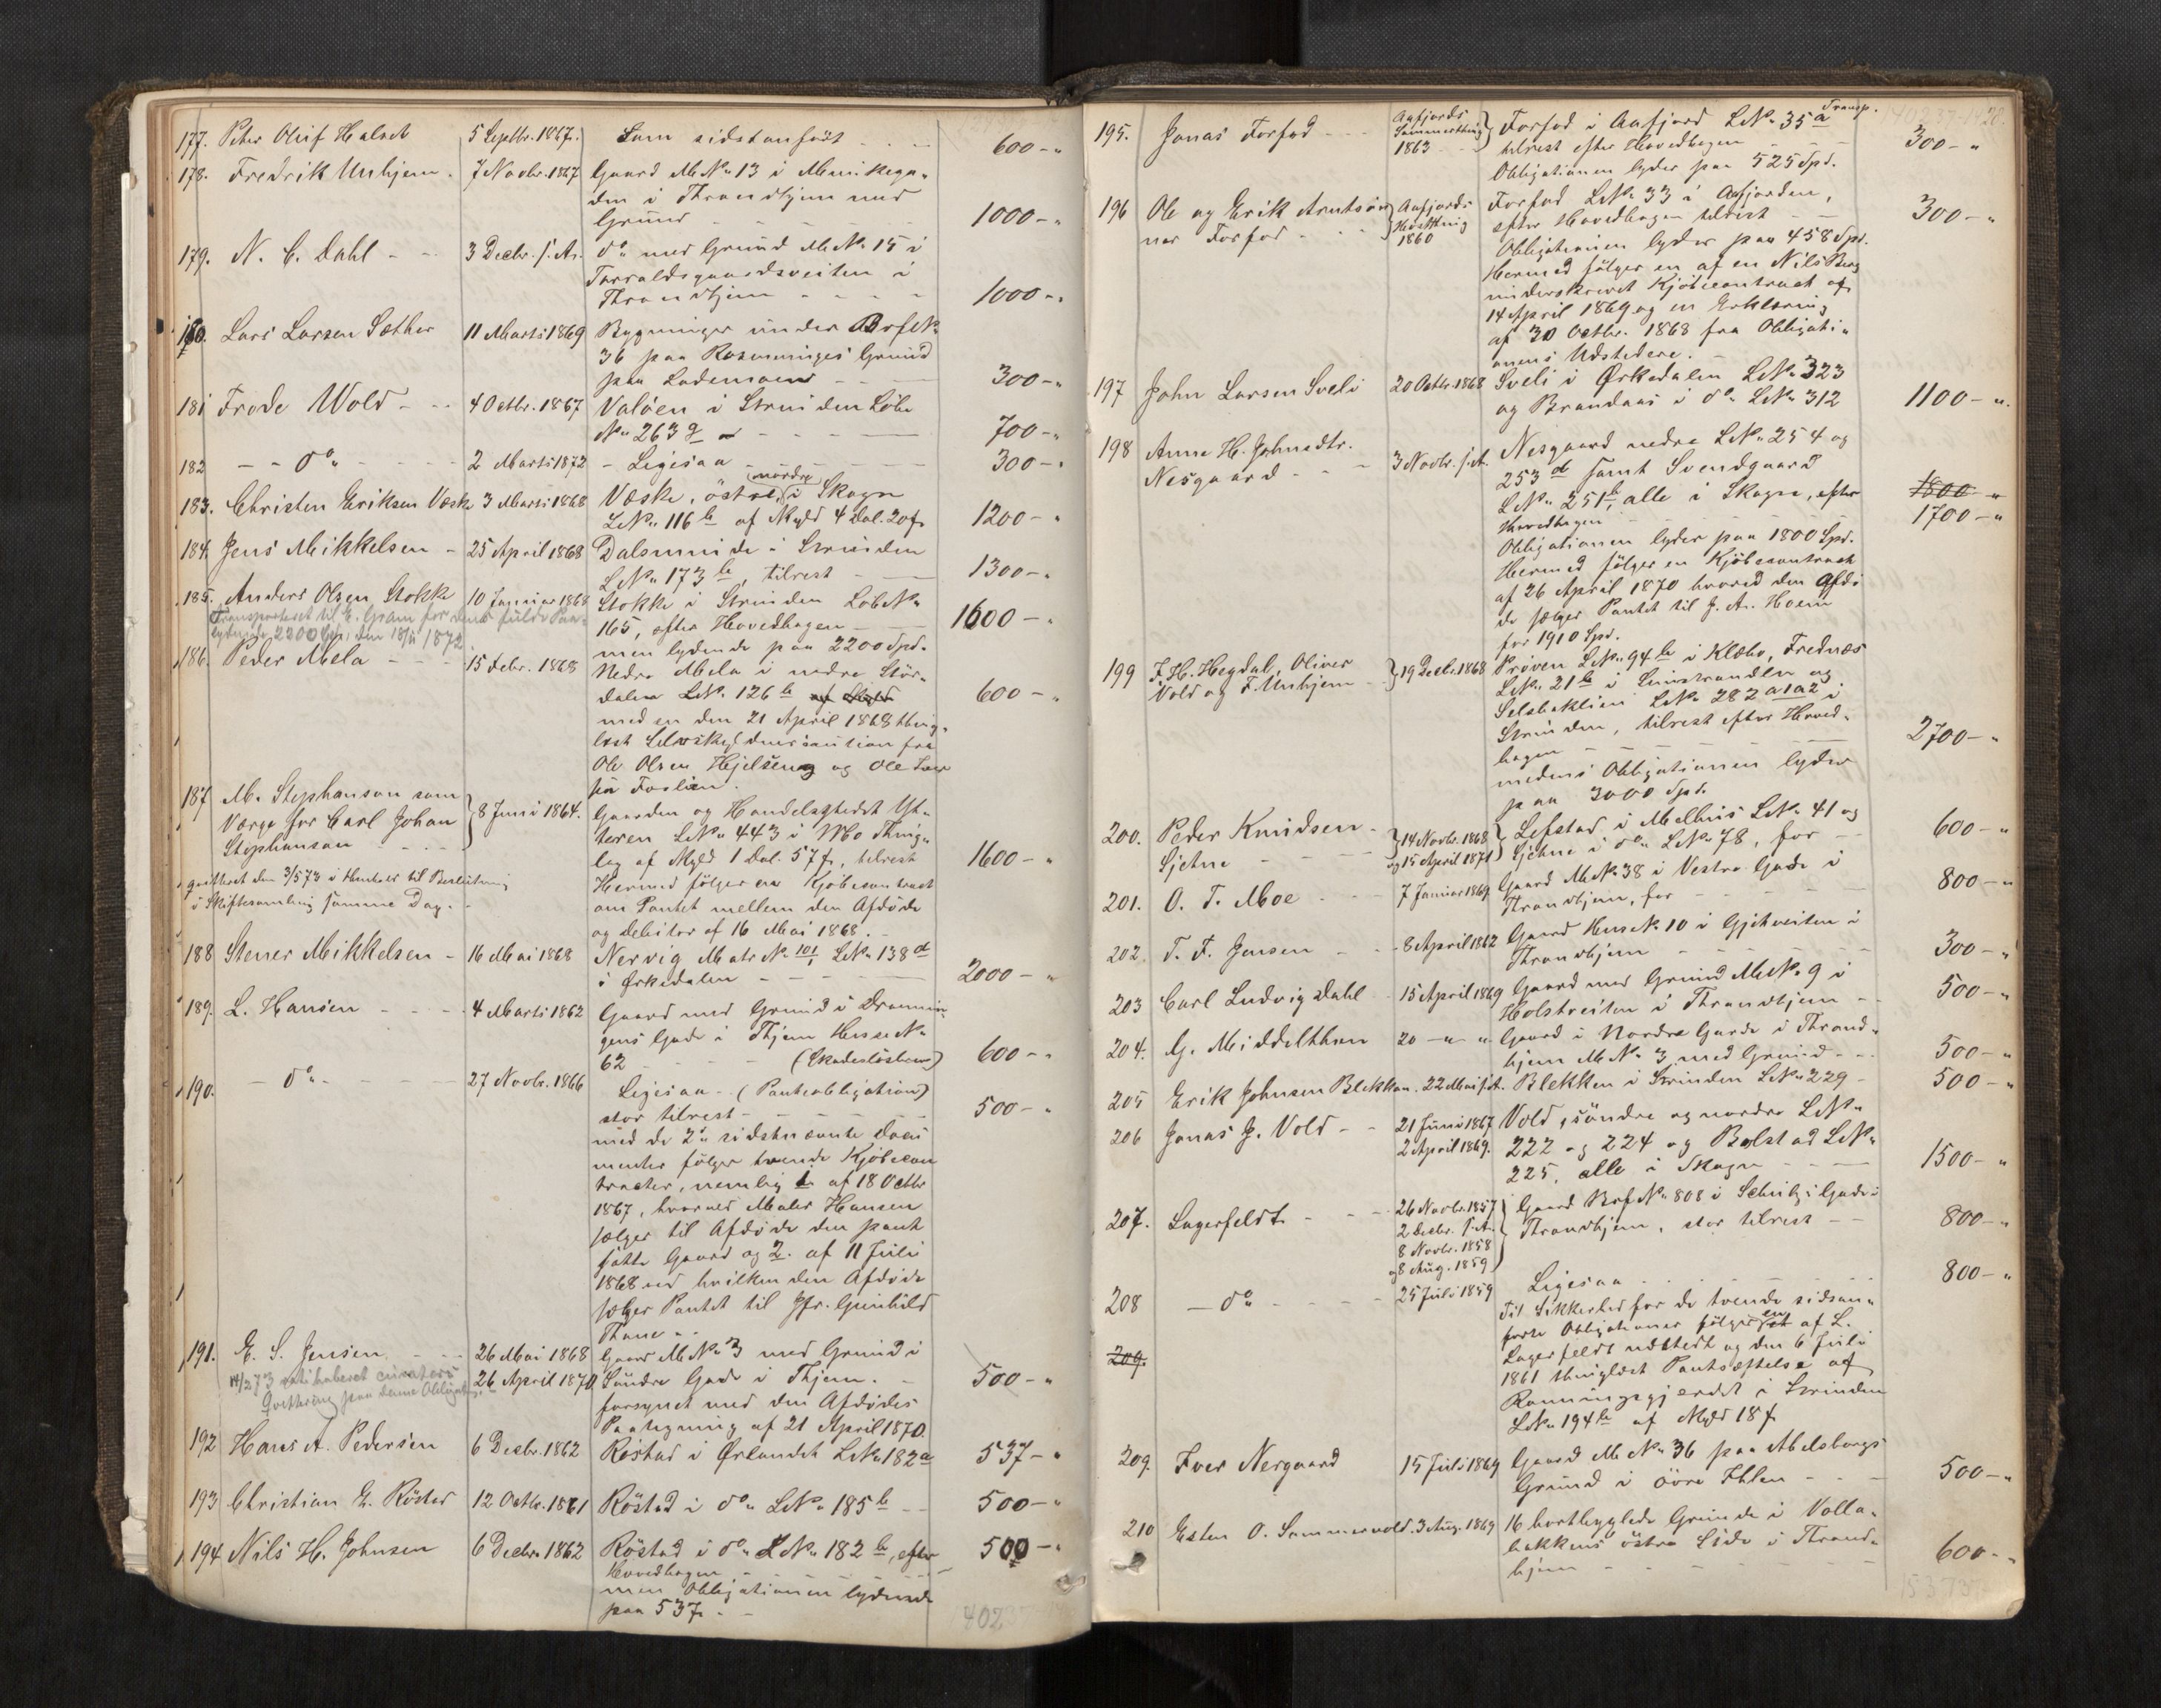 177. Peter Oluf Halset 5 Septbr. 1867. Som sidstanført 600 - "
178. Fredrik Unhjem. 7 Novbr. 1867 Gaard M No 13 i Munkega-
den i Throndhjem med
Grund 1000 - "
179. N. C. Dahl 3 Decbr. s. A. do med Grund M No 15 i
Torvaldsgaardsveiten i
Throndhjem 1000 - "
180. Lars Larsen Sæther 11 Marts 1869 Bygninger under Brfk No
36 paa Rosenminges Grund
paa Lademoen 300 - "
181 Frode Wold 4 Octbr. 1867 Valøen i Strinden Løbe
No 263 g 700 - "
182 - - do 2 Marts 1872 - Ligesaa 300 - "
183. Christen Eriksen Væske 3 Marts 1868 Væske, østre, nordre i Skogn
L No 116 b af Skyld 4 Dal. 20 f 1200 - "
184. Jens Mikkelsen - 25 April 1868 Dalsminde i Strinden
L No 173 b, tilrest 1300 - "
185. Anders Olsen Stokke 10 Januar 1868 Stokke i Strinden Løbe No
Transporteret til E. Gram for dens fulde Paa-
lydende 2200 Spd, den 18/11 1872
165, efter Hovedbogen 1600 - "
men lydende paa 2200 Spd.
186. Peder Mela 15 Febr. 1868 Nedre Mela i nedre Stør-
dalen L No 126 b af Skyld 600 - "
med en den 21 April 1868 thing-
læst Selvskyldnercaution fra
Ole Olsen Hjelseng og Ole
på Foslien.
187 M. Stephanson som
Værge for Carl Johan
Stephanson 8 Juni 1864. Gaarden og Handelsstedet Yt-
teren L No 443 i Mo Thing-
lag af Skyld 1 Dal. 57 f, tilrest 1600 - "
qvitteret den 3/5 73 i Henhold til Beslutning
i Skiftesamling samme Dag.
Hermed følger en Kjøbecontract
om Pantet mellem den Afdøde
og debitor af 16 Mai 1868.
188 Stener Mikkelsen - 16 Mai 1868 Nervig Matr No 101/1 L No 138 d
i Ørkedalen 2000 - "
189. L. Hansen 4 Marts 1862 Gaard med Grund i Dronnin-
gens Gade i Thjem Husse No
62 (Skadesløsbrev) 600 - "
190. - do 27 Novbr. 1866 Ligesaa (Panteobligation)
stor tilrest 500 - "
med de 2de sidstnævnte Docu
menter følger tvende Kjøbecon
tracter, nemlig 1 af 18 Octbr
1867, hvorved Maler Hansen
sælger til Afdøde den pant
satte Gaard og 2. af 11 Juli
1868 ved hvilken den Afdøde
sælger Pantet til Jfr. Gunhild
Thane
191. E. S. Jensen 26 Mai 1868 Gaard M No 3 med Grund i
14/2 73 ratihaberet curators
Qvittering paa denne Obligation
26 April 1870 Søndre Gade i Thjem. 500 - "
forsynet med den Afdødes
Paategning af 21 April 1870
192 Hans A. Pedersen 6 Decbr. 1862 Røstad i Ørlandet L No 182 a 537 - "
193 Christian E. Røstad 12 Octbr. 1861 Røstad i do L No 185 b 500 - "
194 Nils H. Johnsen 6 Decbr 1862 Røstad i do L No 182 b, efter 500 - "
Hovedbogen
men Obligationen lydende
paa 537
195. Jonas Forfod Aafjords
Sommerthing
1863 Forfod i Aafjord L No 35 a Transp.
tilrest efter Hovedbogen 300 - "
Obligationen lyder paa 525 Spd.
196 Ole og Erik Arntsøn
ner Forfod Aafjords
Høstthing
1860 Forfod L No 33 i Aafjorden,
efter Hovedbogen tilrest 300 - "
Obligationen lyder paa 458 Spd.
Hermed følger en af en Nils Berg
underskrevet Kjøbecontract af
14 April 1869 og en Erklæring
af 30 Octbr. 1868 fra Obligati-
onens Udstedere.
197 John Larsen Sveli 20 Octbr. 1868 Sveli i Ørkedalen L No 323
og Brandaas i do L No 312 1100 - "
198 Anne H. Johnsdtr.
Nesgaard 3 Novbr. s. A. Nesgaard nedre L No 254 og
253 d samt Svendgaard
L No 251 b, alle i Skogn, efter 1800 - "
Hovedbogen 1700 - "
Obligationen lyder paa 1800 Spd.
Hermed følger en Kjøbecontract
af 26 April 1870 hvorved den Afdø
de sælger Pantet til J. A. Hoem
for 1910 Spd.
199 F. H. Hegdal, Oliver
Vold og F. Unhjem 19 Decbr. 1868 Prøven L No 94 b i Klæbo, Frednæs
L No 21 b i Leinstranden og
Selsbaklien L No 282 a1a2 i
Strinden, tilrest efter Hoved-
bogen 2700 - "
medens Obligationen lyder
paa 3000 Spd.
200. Peder Knudsen
Sjetne 14 Novbr. 1868
og 15 April 1871 Lefstad i Melhus L No 41 og
Sjetne i do L No 78, for 600 - "
201. O. T. Moe 7 Januar 1869 Gaard M No 38 i Vestre Gade i
Throndhjem, for 800 - "
202 T. F. Jensen 8 April 1862 Gaard Huse No 10 i Gjetveiten i
Throndhjem 300 - "
203 Carl Ludvig Dahl 15 April 1869 Gaard med Grund M No 9 i
Holstveiten i Throndhjem 500 - "
204. G. Middelthon 20 - " - " Gaard i Nordre Gade i Thrond-
hjem M No 3 med Grund 500 - "
205 Erik Johnsen Blekkan. 22 Mai s. A. Blekken i Strinden L No 229 500 - "
206 Jonas J. Vold 21 Juni 1867
2 April 1869. Vold, søndre og nordre L No
222 og 224 og Bolstad L No
225, alle i Skogn 1500 - "
207. Lagerfeldt 26 Novbr. 1857
2 Decbr. s. A.
8 Novbr. 1858
og 8 Aug. 1859 Gaard Brf No 808 i Schulz's Gade i
Throndhjem, stor tilrest 800 - "
208 - do 25 Juli 1859 Ligesaa 800 - "
Til Sikkerhed for de tvende sidstan-
førte Obligationer følger en af L.
209.
Lagerfeldt udstedt og den 6 Juli
1861 thinglæst Pantsættelse af
Ronningsgjerdet i Strinden
L No 194 b af Skyld 18 f
209. Iver Nergaard 15 Juli 1869 Gaard M No 36 paa Abelsborgs
Grund i øvre Ihlen 500 - "
210 Esten O. Sommervold. 3 Aug. 1869 16 bortbyggede Grunde i Volla-
bakkens østre Side i Thrond-
hjem 600 - "